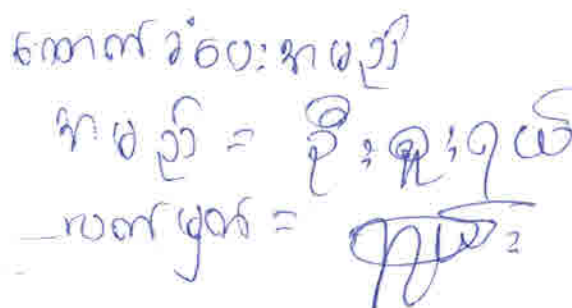 ထောက်ခံပေးအမည်
အမည် = ဦးရှူးရယ်
လက်မှတ် =